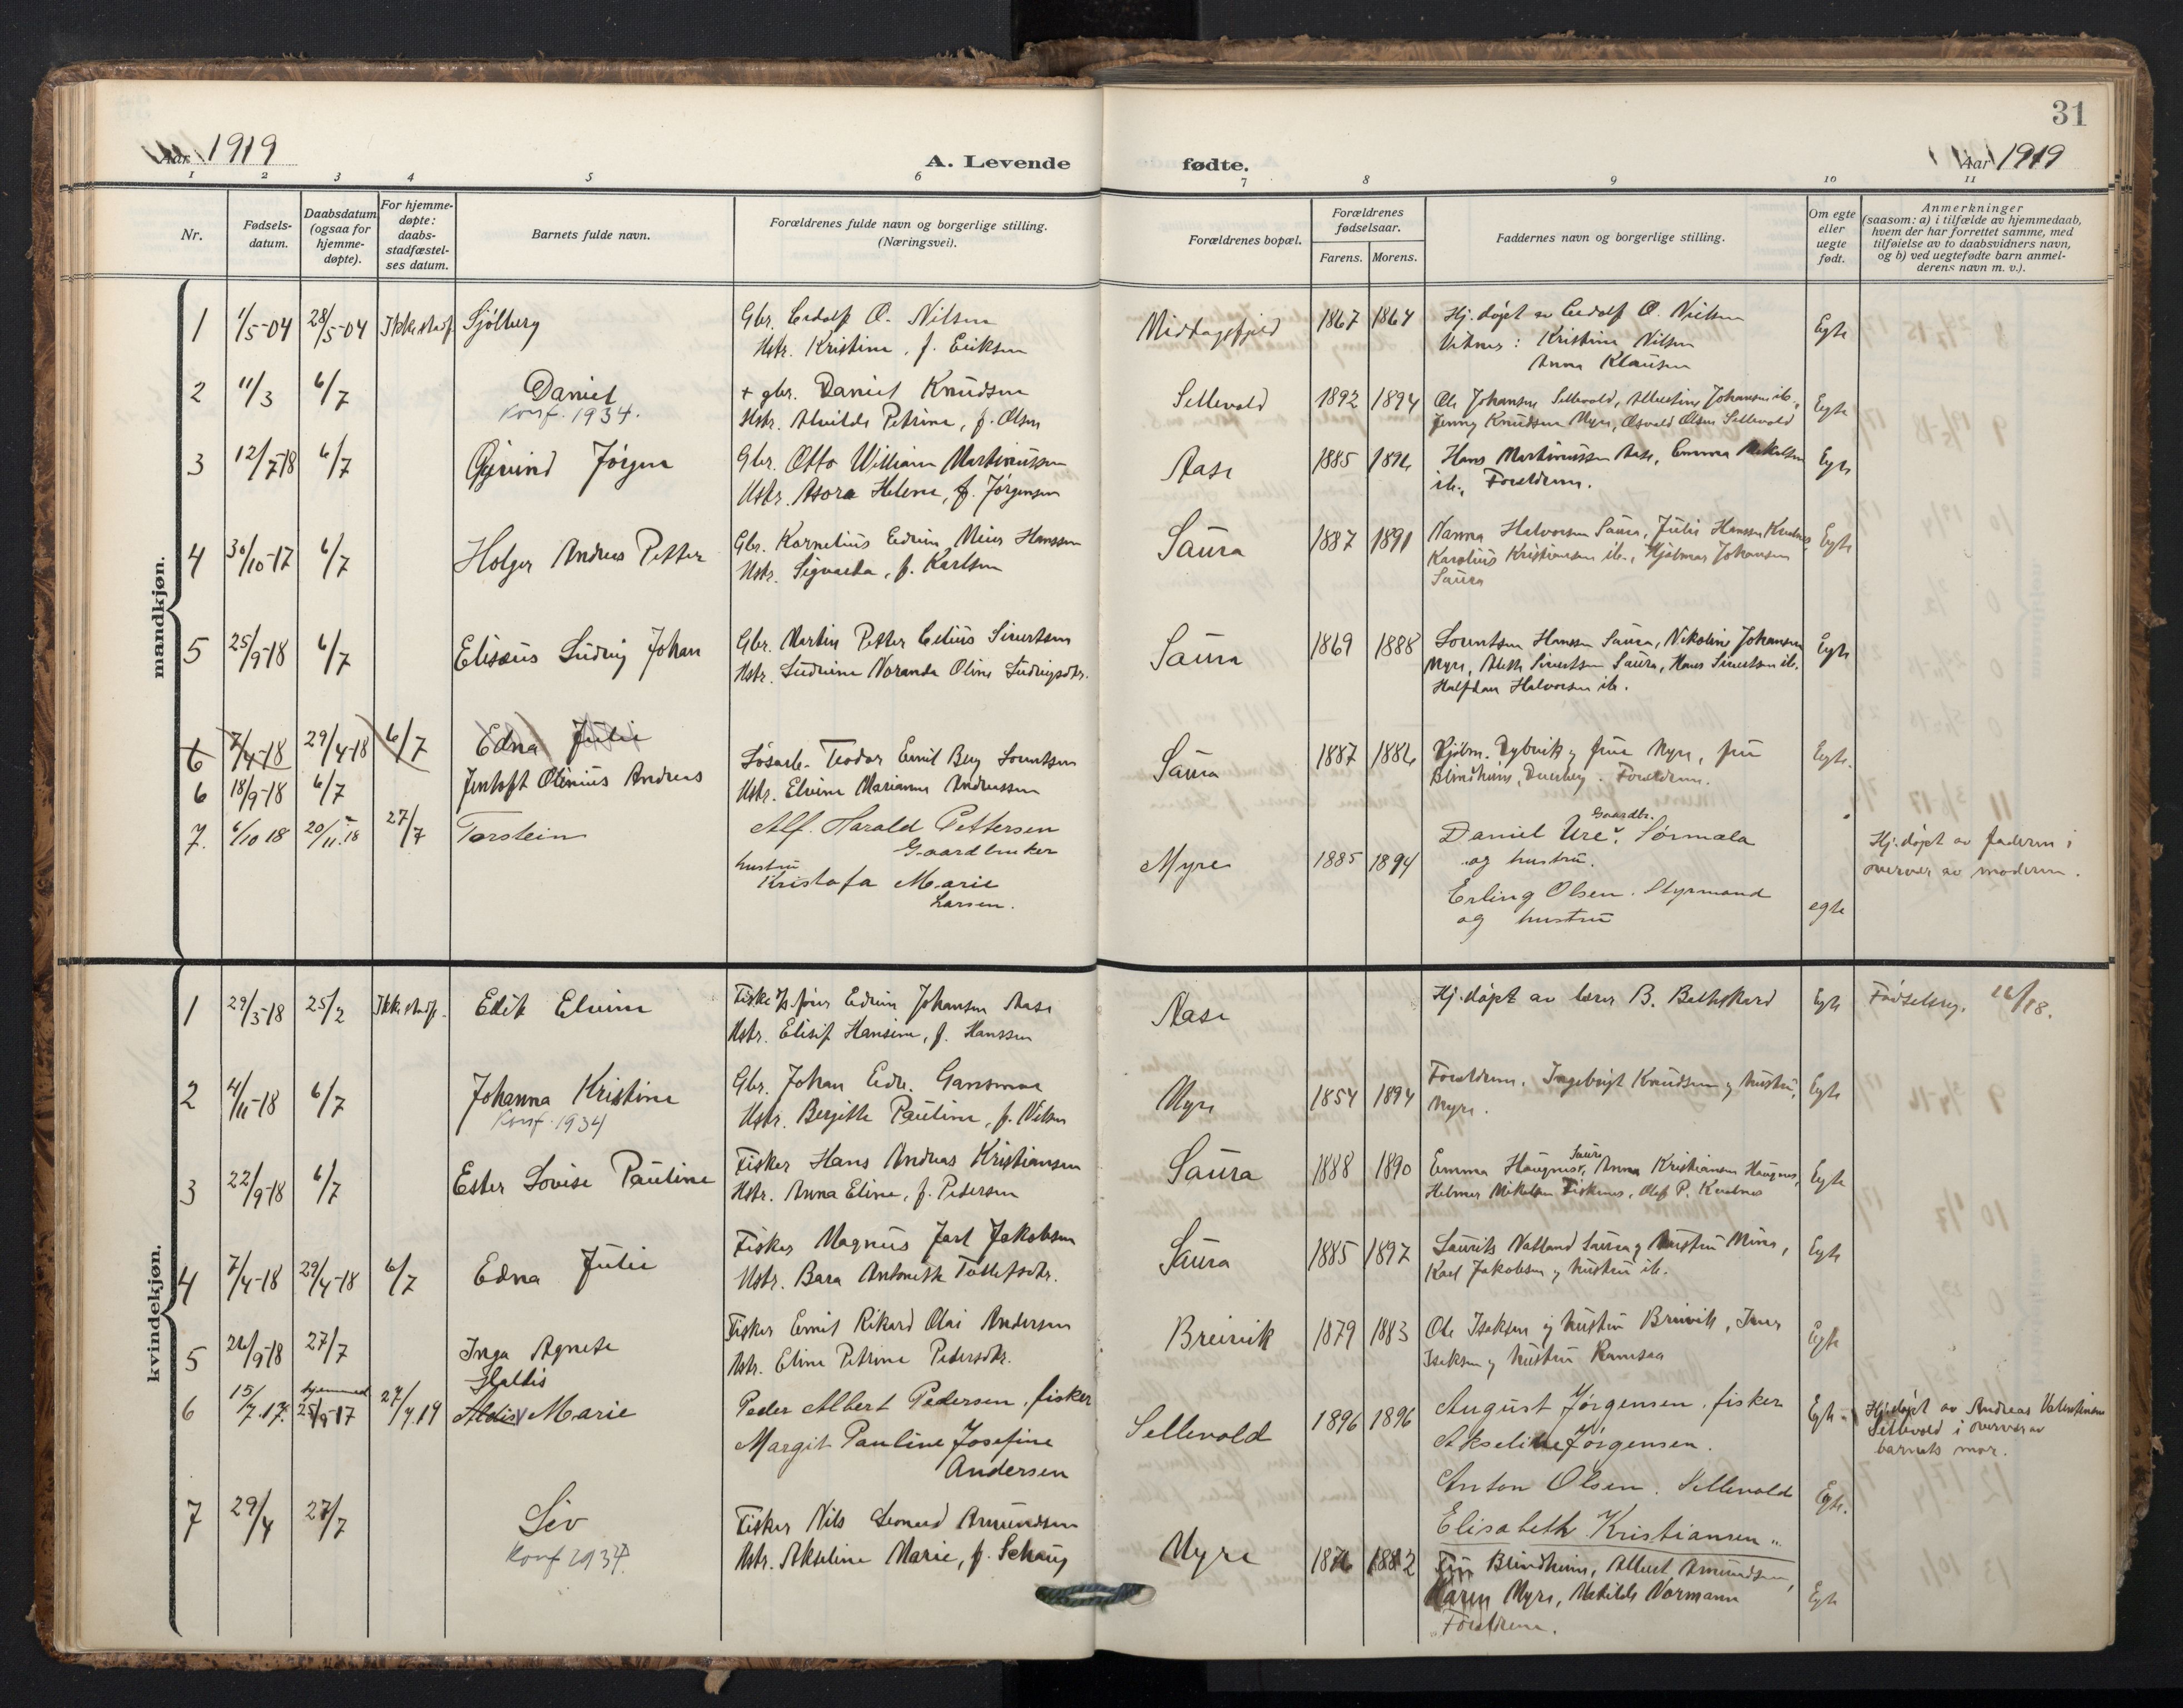 31
Aar 1919
A. Levende fødte.
Aar 1919
1 2 3 4 5 6 7 8 9 10 11
Nr.
Fødsels-
datum.
Daabsdatum
(ogsaa for
hjemme-
døpte).
For hjemme-
døpte:
daabs-
stadfæstel-
ses datum.
Barnets fulde navn.
Forældrenes fulde navn og borgerlige stilling.
(Næringsvei).
Forældrenes bopæl.
Forældrenes
fødselsaar.
Farens. Morens.
Faddernes navn og borgerlige stilling.
Om egte
eller
uegte
født.
Anmerkninger
(saasom: a) i tilfælde av hjemmedaab,
hvem der har forrettet samme, med
tilføielse av to daabsvidners navn,
og b) ved uegtefødte barn anmel-
derens navn m. v.).
mandkjøn.
1 1/5-04 28/5-04 Ikke stadf. Sjölberg
Gbr. O. Nilsen
Hstr. Kristine, f. Eriksen
Middagsfjeld 1867 1864
Hj. døpt av O. Nielsen
Vitner: Kristine Nilsen
Anna Klausen
Egte
2 11/3 6/7 Daniel
Konf. 1934.
+ gbr. Daniel Knudsen
Hstr. Alvilde Petrine, f. Olsen
Sellevold 1892 1894
Ole Johansen Sellevold, Albertine Johansen ib.,
Jenny Knudsen Myre, Osvald Olsen Sellevold
Egte
3 12/7-18 6/7 Øyvind Jørgen
Gbr. Otto William Martinussen
Hstr. Asora Helene, f. Jørgensen
Aase 1885 1896
Hans Martinussen Aase, Emma Mikalsen
ib., Foreldrene.
Egte
4 30/10-17 6/7 Holger Andreas Petter
Gbr. Kornelius Edvin Meier Hanssen
Hstr. Sigvarda, f. Karlsen
Saura 1887 1891
Nanna Halvorsen Saura, Julie Hanssen
Karolius Kristiansen ib., Hjalmar Johansen
Saura
Egte
5 25/9-18 6/7 Elisæus Ludvig Johan
Gbr. Martin Petter Sivertsen
Hstr. Ludvine Noranda Oline Ludvigsdtr.
Saura 1869 1888
Lorentsen Hanssen Saura, Nikoline Johansen
Myre, Sivertsen Saura, Hans Sivertsen ib.
Halfdan Halvorsen ib.
Egte
6 7/4-18 29/4-18 6/7 Edna Julie
6 18/9-18 6/7 Jentoft Olinius Andreas
Løsarb. Teodor Emil Berg Lorentsen
Hstr. Elvine Marianne Andreassen
Saura 1887 1886
Kjøbm. Dybvik og frue Myre, fru
Blindheim, Dverberg. Foreldrene.
Egte.
7. 6/10 18 20/11.18 27/7 Torstein
Alf. Harald Pettersen
Gaardbruker
hustru
Kristofa Marie
Larsen.
Myre 1885 1894
Gaardbr.
Daniel Ure, Sørmela
og hustru.
Erling Olsen. Styrmand
og hustru
egte
Hj. døpt av faderen i
overvær av moderen.
kvindekjøn.
1 29/3-18 25/2 Ikke stadf. Edit Elvine
Edvin Johansen Aase
Hstr. Elisif Hansine, f. Hanssen
Aase
Hj. døpt av lærer B. Bathskard
Egte
Fødselsreg. 26/18.
2 4/11-18 6/7 Johanna Kristine
Konf. 1934
Gbr. Johan Edv. Gansmoe
Hstr. Bergitte Pauline, f. Nilsen
Myre 1854 1894
Foreldrene. Ingebrigt Knudsen og hustru,
Myre.
Egte
3 22/9-18 6/7 Ester Lovise Pauline
Fisker Hans Andreas Kristiansen
Hstr. Anna Eline, f. Pedersen
Saura 1888 1890
Saura
Emma Haugnes, Anna Kristiansen Haugnes,
Helmer Mikalsen Fiskenes, Olef P.
Egte
4 7/4-18 29/4-18 6/7 Edna Julie
Fisker Magnus Jarl Jakobsen
Hstr. Bara Antonette Tollefsdtr.
Saura 1885 1897
Laurits Natland Saura og hustru Mina,
Karl Jakobsen og hustru ib.
Egte
5 26/9-18 27/7 Inga Agnete
Fisker Emil Rikard Olai Andersen
Hstr. Eline Petrine Pedersdtr.
Breivik 1879 1883
Ole Isaksen og hustru Breivik,
Isaksen og hustru Ramsaa
Egte
6 15/7.17. hjemmed 25/9-17 27/7.19
Haldis
Aldis Marie
Peder Albert Pedersen, fisker
Margit Pauline Josefine
Andersen
Sellevold 1896 1896
August Jørgensen, fisker
Akseline Jørgensen.
Anton Olsen. Sellevold
Elisabeth Kristiansen "
Egte
Hj. døpt av Andreas Valentinsen
Sellevold i overvær av
barnets mor.
Egte.
7 29/4 27/7 Liv
Konf 1934.
Fisker Nils Leonard Amundsen
Hstr. Akseline Marie, f. Schaug
Myre 1876 1882
Fru Blindheim, Albert Amundsen,
Karen Myre, Matilde Normann
Foreldrene.
Egte